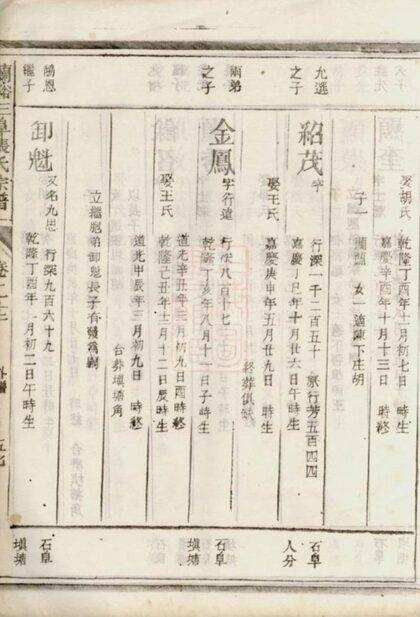 娶胡氏 乾隆丁酉年十二月初七日 時生
嘉慶辛酉年十月十三日 時終
子一 女一適陳下庄胡
允選
之子
紹茂
字 行深一千二百五十 派行芳五百四四
嘉慶丁巳年十月廿六日午時生
娶王氏 嘉慶庚申年五月廿九日 時生
終葬俱缺
石阜
人分
之子
金鳳
字行遠 行深八百十七
乾隆丁亥年八月十一日子時生
道光辛丑年三月初九日酉時終
娶王氏 乾隆己丑年十二月十二日辰時生
道光甲辰年三月初九日 時終
合葬塡塘角
立繼胞弟卸魁長子有
石阜
塡塘
繼子
卸魁
又名九思 行深九百六十九
乾隆丁酉年 月初二日午時生
石阜
塡塘
張氏宗譜